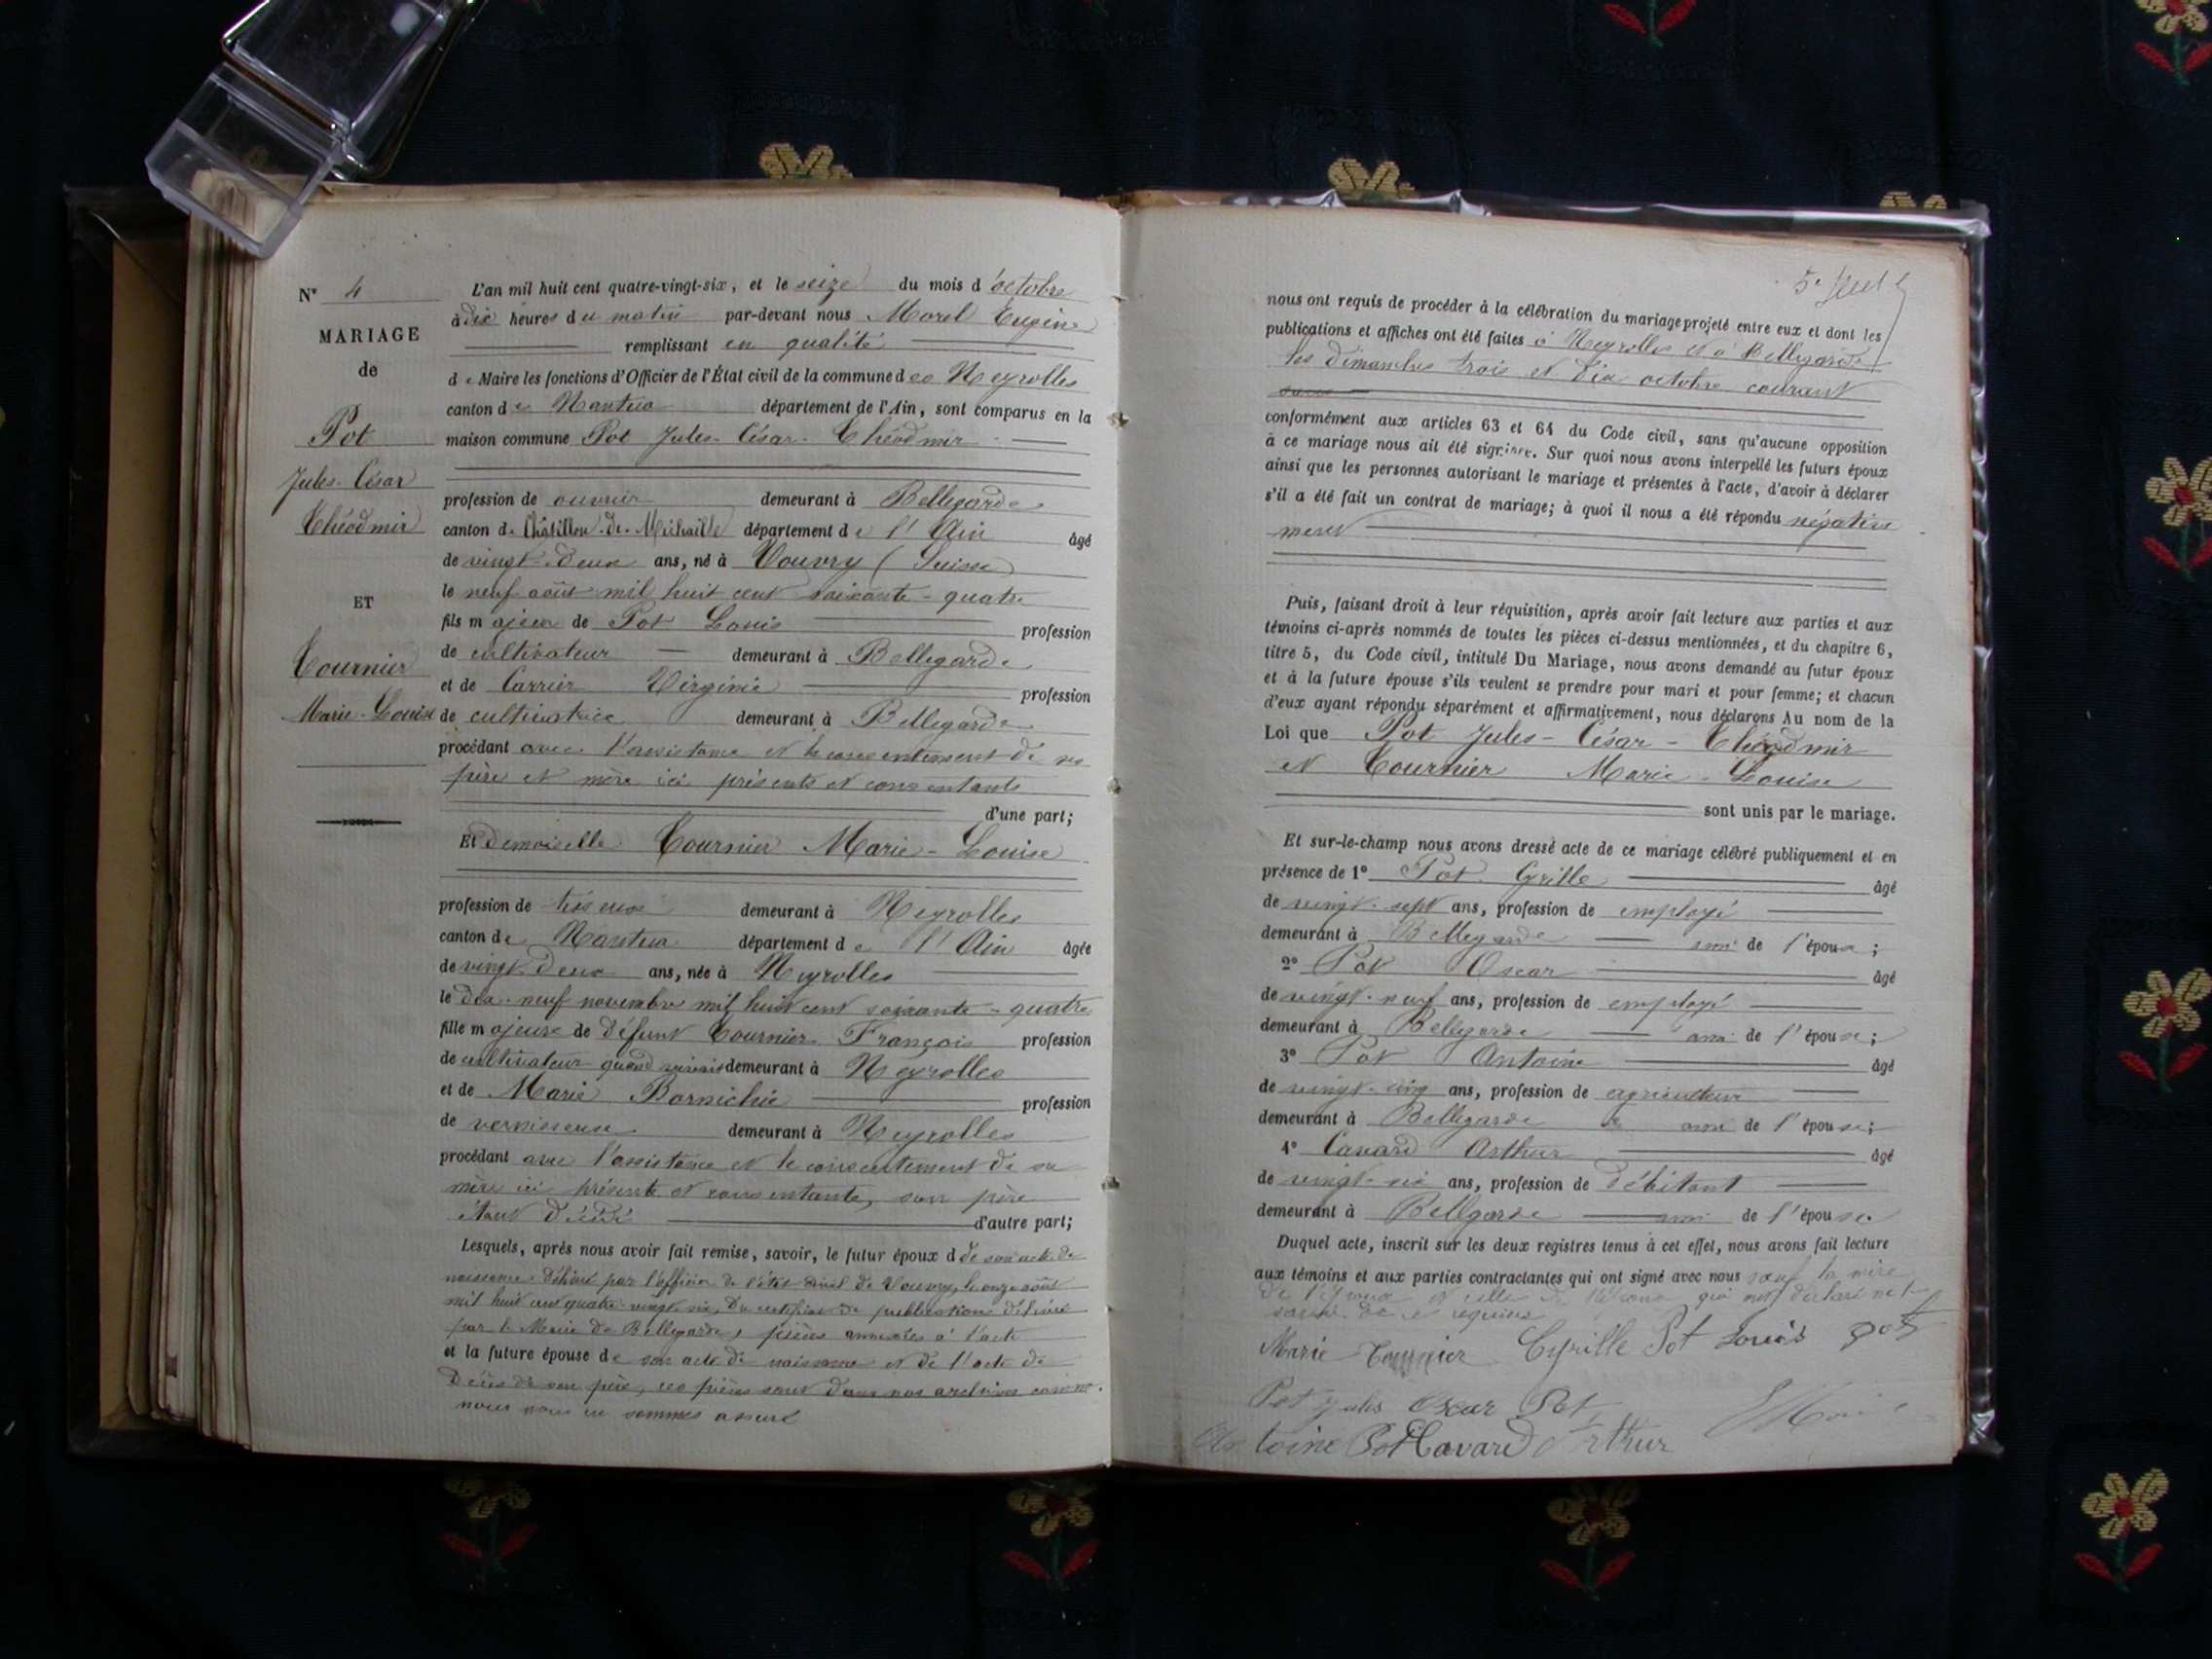 N° 4
MARIAGE
de
Pot
Jules-César
Théodmir
ET
Tournier
Marie-Louise
L'an mil huit cent quatre-vingt-six, et le seize du mois d'octobre
à dix heures du matin par-devant nous Morel Eugène
remplissant en qualité
de Maire les fonctions d'Officier de l'État civil de la commune des Neyrolles
canton de Nantua département de l'Ain, sont comparus en la
maison commune Pot Jules-César-Théodmir
profession de ouvrier demeurant à Bellegarde
canton de Châtillon-de-Michaille département de l'Ain âgé
de vingt-deux ans, né à Vouvry (Suisse)
le neuf août mil huit cent soixante-quatre
fils majeur de Pot Louis profession
de cultivateur demeurant à Bellegarde
et de Carrier Virginie profession
de cultivatrice demeurant à Bellegarde
procédant avec l'assistance et le consentement de ses
père et mère ici présents et consentants
d'une part;
Et demoiselle Tournier Marie-Louise
profession de tisseuse demeurant à Neyrolles
canton de Nantua département de l'Ain âgée
de vingt deux ans, née à Neyrolles
le dix-neuf novembre mil huit cent soixante-quatre
fille majeure de défunt Tournier François profession
de cultivateur quand vivait demeurant à Neyrolles
et de Marie profession
de demeurant à Neyrolles
procédant avec l'assistance et le consentement de sa
mère ici présente et consentante, son père
étant décédé d'autre part;
Lesquels, après nous avoir fait remise, savoir, le futur époux d de son acte de
naissance délivré par l'officier de l'état civil de Vouvry, le onze août
mil huit cent quatre-vingt-six, du certificat de publications délivré
par le Maire de Bellegarde, pièces annexées à l'acte
et la future épouse de son acte de naissance et de l'acte de
décès de son père, ces pièces sont dans nos archives comme
nous nous en sommes assuré
5e feuil
nous ont requis de procéder à la célébration du mariage projeté entre eux et dont les
publications et affiches ont été faites à Neyrolles et à Bellegarde
les dimanches trois et dix octobre courant
conformément aux articles 63 et 64 du Code civil, sans qu'aucune opposition
à ce mariage nous ait été signifiée. Sur quoi nous avons interpellé les futurs époux
ainsi que les personnes autorisant le mariage et présentes à l'acte, d'avoir à déclarer
s'il a été fait un contrat de mariage; à quoi il nous a été répondu négative
ment
Puis, faisant droit à leur réquisition, après avoir fait lecture aux parties et aux
témoins ci-après nommés de toutes les pièces ci-dessus mentionnées, et du chapitre 6,
titre 5, du Code civil, intitulé Du Mariage, nous avons demandé au futur époux
et à la future épouse s'ils veulent se prendre pour mari et pour femme; et chacun
d'eux ayant répondu séparément et affirmativement, nous déclarons Au nom de la
Loi que Pot Jules-César-Théodmir
et Tournier Marie-Louise
sont unis par le mariage.
Et sur-le-champ nous avons dressé acte de ce mariage célébré publiquement et en
présence de 1° Pot Cyrille âgé
de vingt-sept ans, profession de employé
demeurant à Bellegarde ami de l'époux;
2° Pot Oscar âgé
de vingt-neuf ans, profession de employé
demeurant à Bellegarde ami de l'époux;
3° Pot Antoine âgé
de vingt-cinq ans, profession de agriculteur
demeurant à Bellegarde ami de l'épouse;
4° Cavard Arthur âgé
de vingt-six ans, profession de débitant
demeurant à Bellgarde ami de l'épouse
Duquel acte, inscrit sur les deux registres tenus à cet effet, nous avons fait lecture
aux témoins et aux parties contractantes qui ont signé avec nous sauf la mère
de l'époux et celle de l'épouse qui ont déclaré ne
savoir de ce requises
Marie Tournier Cyrille Pot Louis pot
Pot jules Oscar Pot
Antoine Pot Cavard Arthur